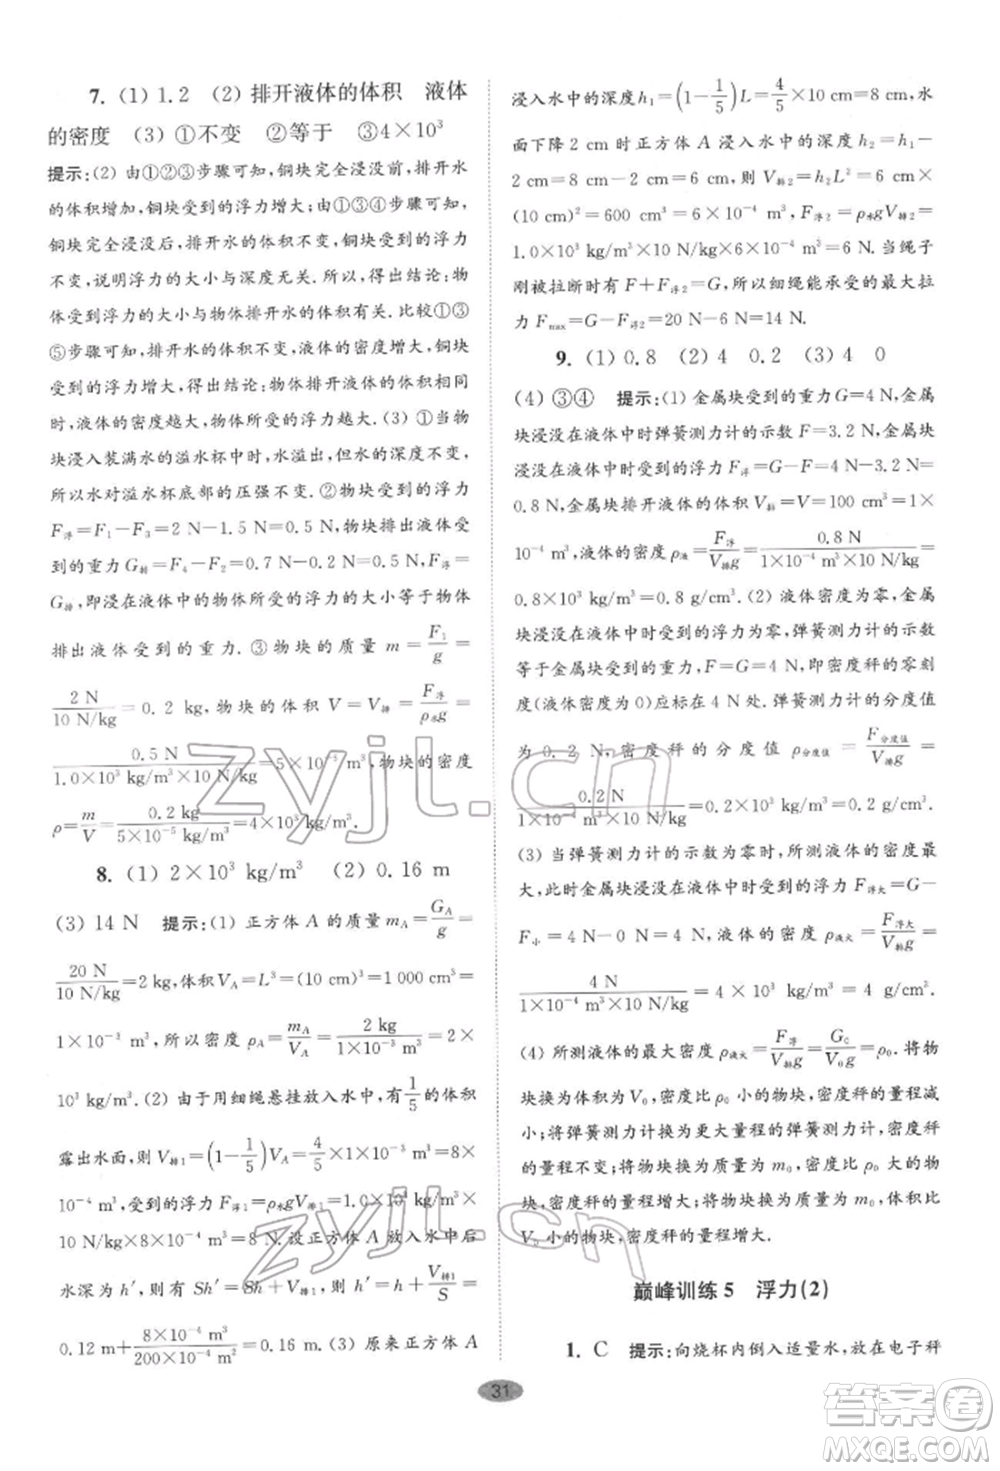 7. (1) 1.2 (2) 排开液体的体积 液体
的密度 (3) ①不变 ②等于 ③4×10³
提示:(2) 由①②③步骤可知,铜块完全浸没前,排开水
的体积增加,铜块受到的浮力增大;由①③④步骤可知,
铜块完全浸没后,排开水的体积不变,铜块受到的浮力
不变,说明浮力的大小与深度无关.所以,得出结论:物
体受到浮力的大小与物体排开水的体积有关.比较①③
⑤步骤可知,排开水的体积不变,液体的密度变大,铜块
受到的浮力增大,得出结论:在物体排开液体体积相同
时,液体的密度越大,物体所受的浮力越大.(3) ①当物
块浸入装满水的溢水杯中时,水面的高度不变,
所以水对溢水杯底部的压强不变.②物块受到的浮力
F浮=F₁-F₃=2 N-1.5 N=0.5 N,物块排出液体受到
的重力G排=F₄-F₂=0.7 N-0.2 N=0.5 N,F浮=
G排,即浸在液体中的物体所受的浮力的大小等于物体
排出液体受到的重力.③物块的质量 m=F₁/g=
2 N/10 N/kg=0.2 kg,物块的体积 V=V排=F浮/ρ水g=
0.5 N/1.0×10³ kg/m³×10 N/kg=5×10⁻⁵ m³,物块的密度
ρ=m/V=0.2 kg/5×10⁻⁵ m³=4×10³ kg/m³.
8. (1) 2×10³ kg/m³ (2) 0.16 m
(3) 14 N 提示:(1) 正方体 A 的质量 mA=GA/g=
20 N/10 N/kg=2 kg,体积 VA=L³=(10 cm)³=1 000 cm³=
1×10⁻³ m³,所以密度 ρA=mA/VA=2 kg/1×10⁻³ m³=2×
10³ kg/m³.(2) 由于用细绳悬挂放入水中,有1/5的体积
露出水面,则 V排1=(1-1/5)VA=4/5×10⁻³ m³=8×
10⁻⁴ m³,受到的浮力 F浮1=ρ水gV排1=1.0×10³ kg/m³×
10 N/kg×8×10⁻⁴ m³=8 N.设正方体 A 放入水中后
水深为 h′,则有 Sh′=Sh+V排1,h′=h+V排1/S=
0.12 m+8×10⁻⁴ m³/200×10⁻⁴ m²=0.16 m.(3) 原来正方体 A
浸入水中的深度 h₁=(1-1/5)L=4/5×10 cm=8 cm,水
面下降 2 cm 时正方体 A 浸入水中的深度 h₂=h₁-
2 cm=8 cm-2 cm=6 cm,则 V排2=h₂L²=6 cm×
(10 cm)²=600 cm³=6×10⁻⁴ m³,F浮2=ρ水gV排2=
1.0×10³ kg/m³×10 N/kg×6×10⁻⁴ m³=6 N.当绳子
刚被拉断时有 F+F浮2=G,则细绳能承受的最大拉
力 Fmax=G-F浮2=20 N-6=14 N.
9. (1) 0.8 (2) 4 0.2 (3) 4 0
(4) ③④ 提示:(1) 金属块受到的重力G=4 N,金属
块浸没在液体中时弹簧测力计的示数 F=3.2 N,金属块
浸没在液体中时受到的浮力 F浮=G-F=4 N-3.2 N=
0.8 N,金属块排开液体的体积 V排=V=100 cm³=1×
10⁻⁴ m³,液体的密度 ρ液=F浮/V排g=0.8 N/1×10⁻⁴ m³×10 N/kg=
0.8×10³ kg/m³=0.8 g/cm³.(2) 液体密度为零,金属
块浸没在液体中时受到的浮力为零,弹簧测力计的示数
等于金属块受到的重力,F=G=4 N,即密度秤的零刻
度(液体密度为0)应标在 4 N 处.弹簧测力计的分度值
为 0.2 N,密度秤的分度值 ρ分度值=F分度值/V排g=
0.2 N/1×10⁻⁴ m³×10 N/kg=0.2×10³ kg/m³=0.2 g/cm³.
(3) 当弹簧测力计的示数为零时,所测液体的密度最
大,此时金属块浸没在液体中时受到的浮力 F浮大=G-
F小=4 N-0 N=4 N,液体的密度 ρ液大=F浮大/V排g=
4 N/1×10⁻⁴ m³×10 N/kg=4×10³ kg/m³=4 g/cm³.
(4) 所测液体的最大密度 ρ液大=F浮/V排g=G₀/V₀g=ρ₀.将物
块换为体积为 V₀、密度小于 ρ₀ 的物块,密度秤的量程减
小;将弹簧测力计换为更大量程的弹簧测力计,密度秤
的量程不变;将物块换为质量为 m₀、密度比 ρ₀ 大的物
块,密度秤的量程增大;将物块换为质量为 m₀,体积比
V₀ 小的物块,密度秤的量程增大.
巅峰训练 5 浮力(2)
1. C 提示:向烧杯内倒入适量水,放在电子秤
31
zyjl.cn
zyjl.cn
答案圈
MXQE.COM